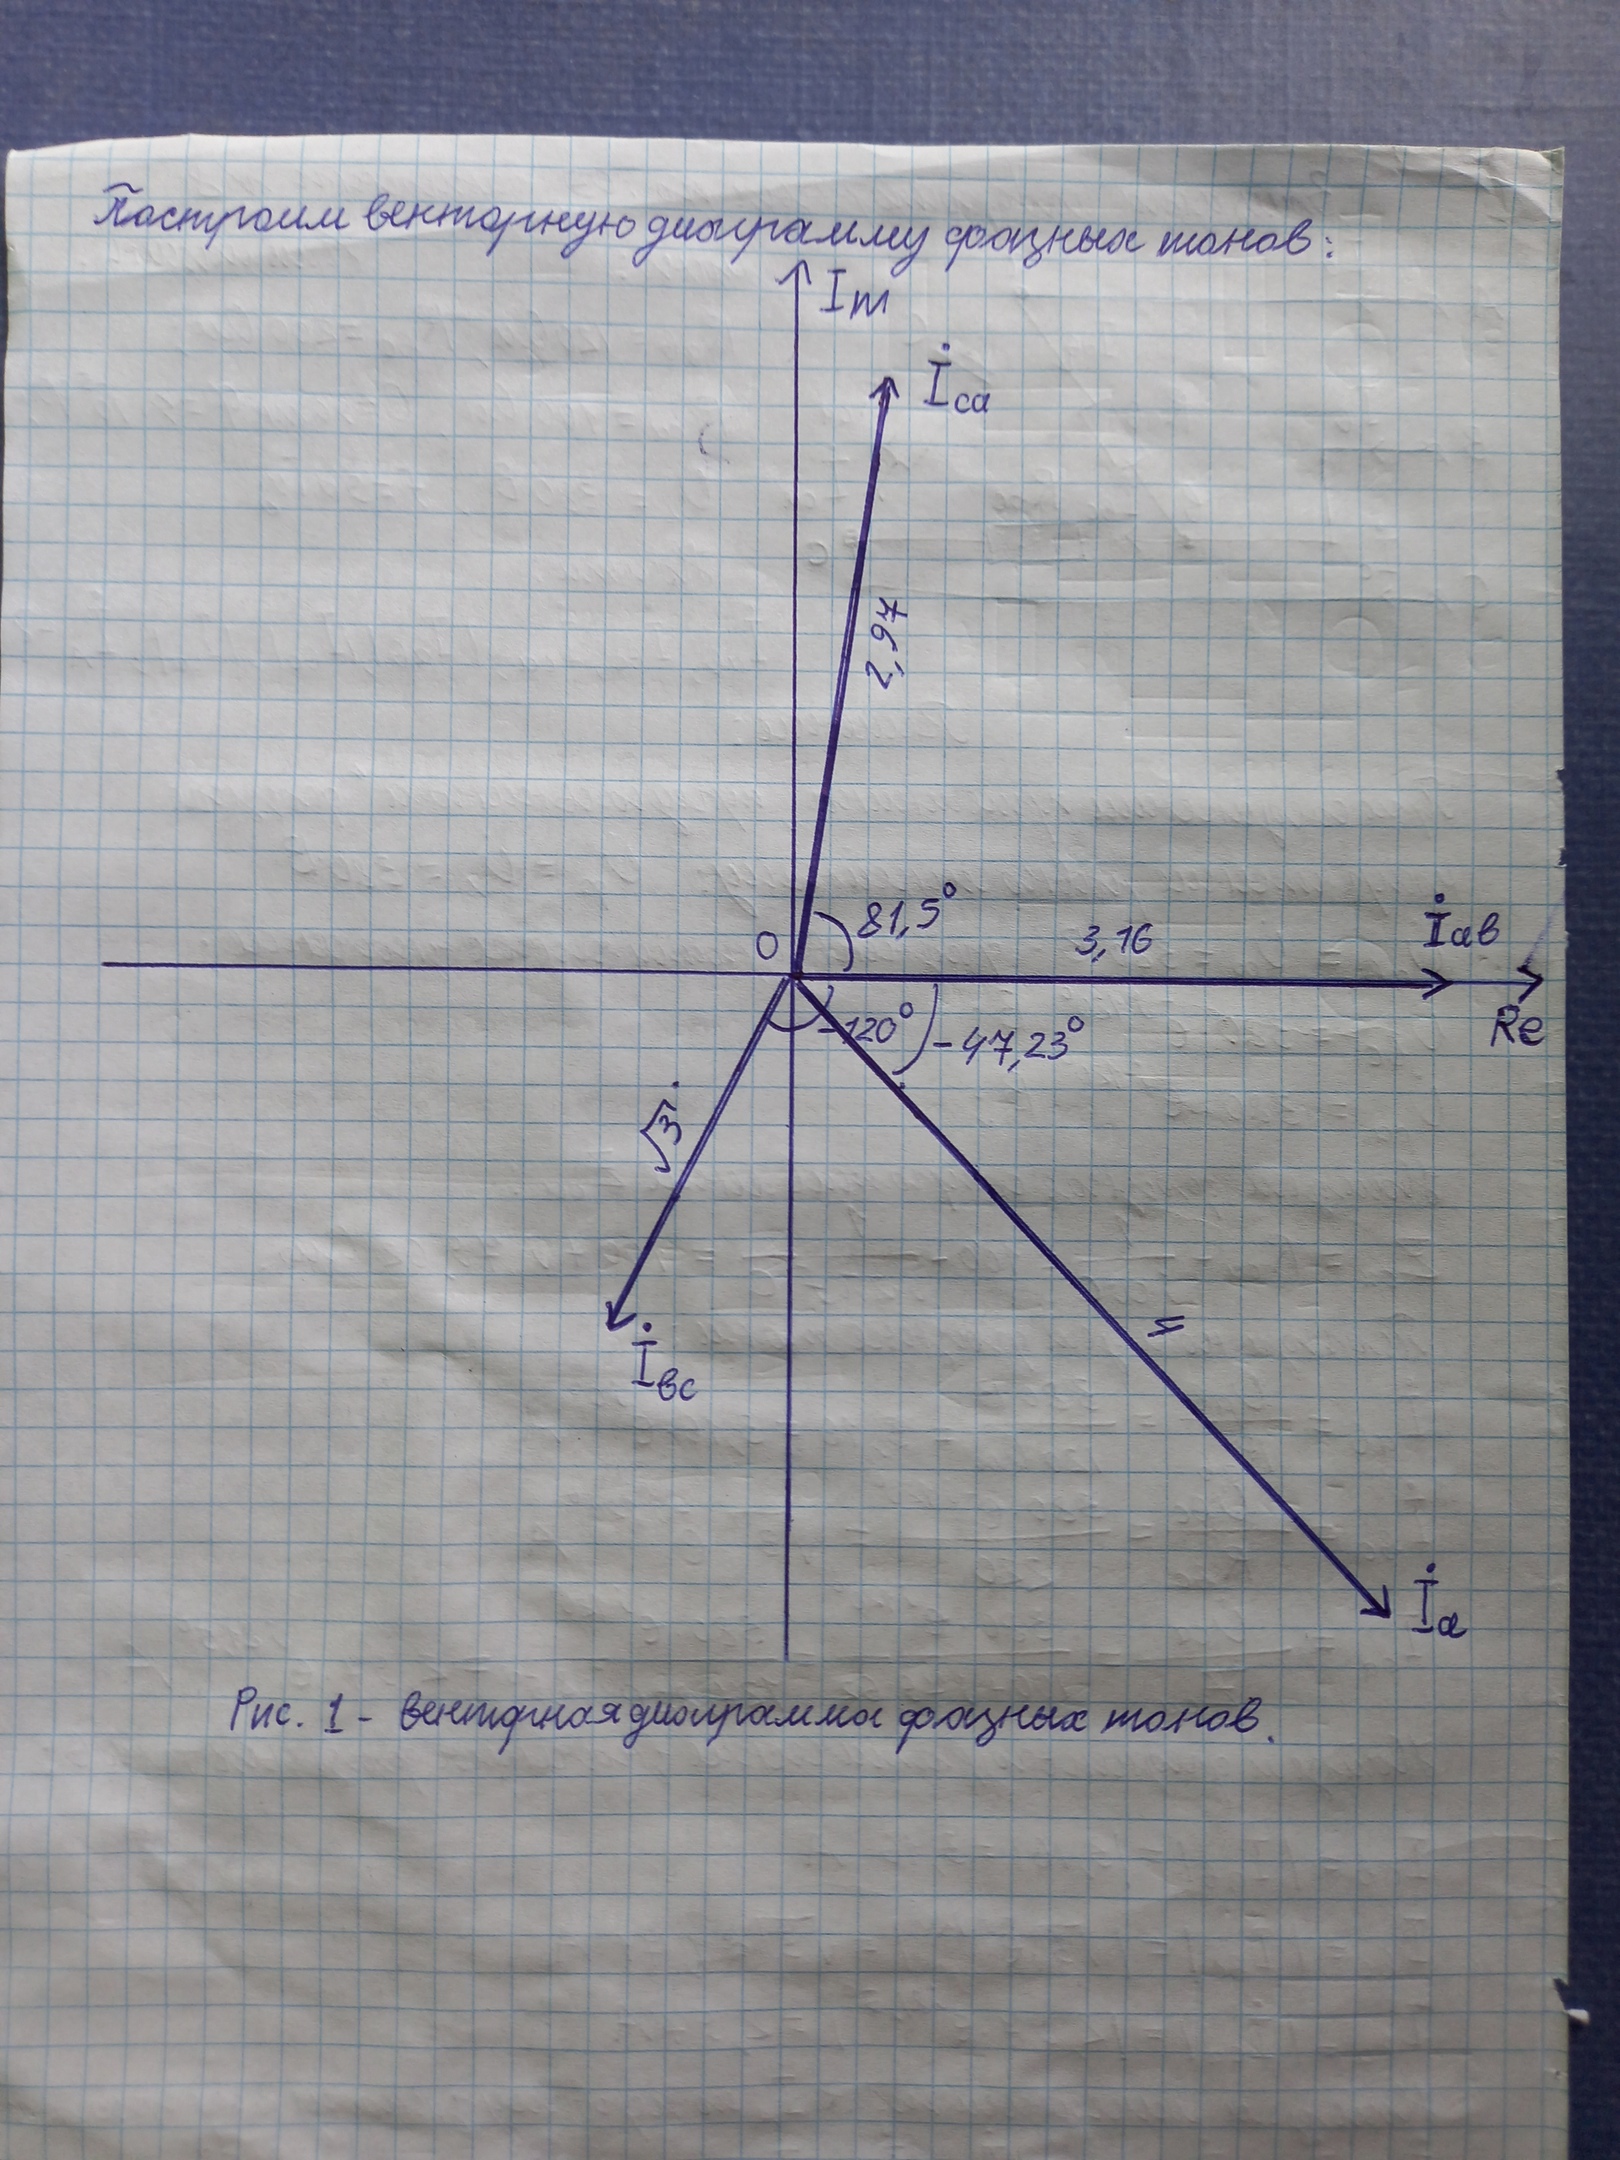 Построим векторную диаграмму фазных токов:
Im
İca
2,97
81,5°
0
3,16
İав
Re
-120°
-47,23°
√3
İвс
4
İа
Рис. 1 - векторная диаграмма фазных токов.